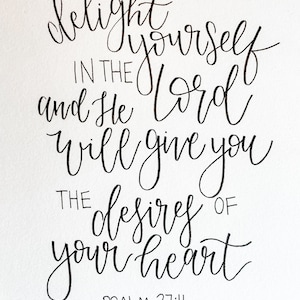 delight
yourself
IN THE
Lord
and He
will give you
THE
desires OF
your heart
PSALM 37:4